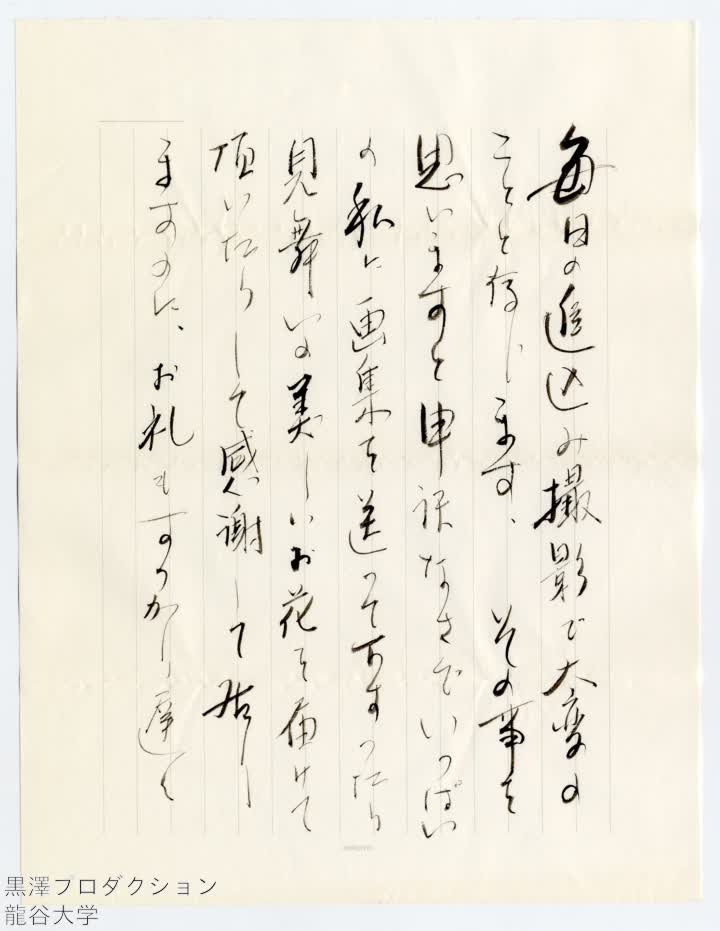 毎日の追込み撮影で大変の
ことと存じます、その事を
思いますと申訳なさでいっぱい
の私に画集を送って下すったり
見舞いの美しいお花を届けて
頂いたりして感謝して居り
ますのに、お礼もすっかり遅く
黒澤プロダクション
龍谷大学